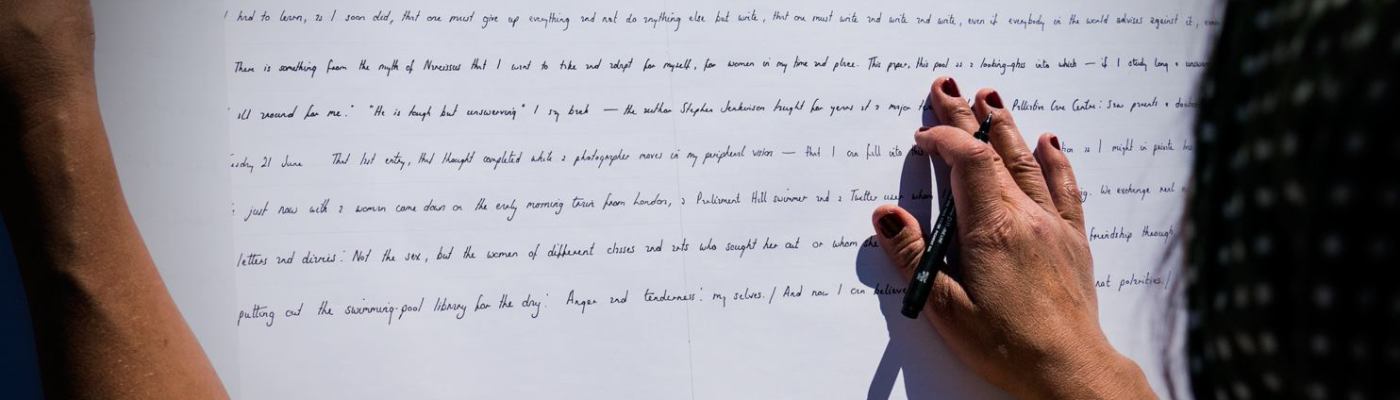 I had to learn, as I soon did, that one must give up everything and not do anything else but write, that one must write and write and write, even if everybody in the world advises against it,
There is something from the myth of Narcissus that I want to take and adapt for myself, for women in my time and place. This paper, this pool is a looking-glass into which — if I study long &
all around for me." "He is tough but unswerving" I say back — the author Stephen Jenkinson taught for years at a major Palliative Care Centre: saw parents &
Tuesday 21 June That last entry, that thought completed while a photographer moves in my peripheral vision — that I can fall into this as I might in private
just now with a woman come down on the early morning train from London, a Parliament Hill swimmer and a Twitter user whom We exchange
letters and diaries: Not the sex, but the women of different classes and arts who sought her out or whom she friendship through
putting out the swimming-pool library for the day: Anger and tenderness: my selves. / And now I can believe not polarities. /